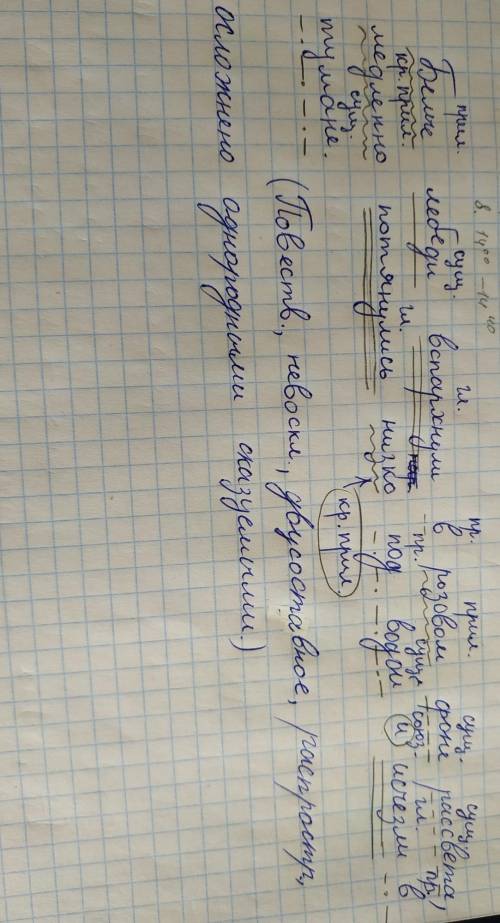 8. 14⁰⁰ – 14⁴⁰
прил. сущ. гл. пр. прил. сущ. сущ.
Белые лебеди вспархнули в розовом фоне рассвета,
кр. прил. гл. пр. сущ. союз гл. пр.
медленно потянулись низко под водой и исчезли в
сущ. кр. прил.
тумане.
(Повеств., невоскл., двусоставное, распростр.,
осложнено однородными сказуемыми.)